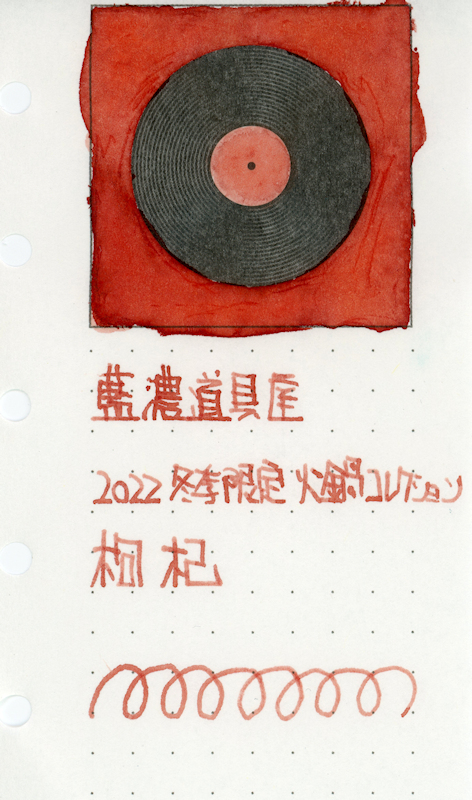 藍濃道具屋
2022 冬季限定 火鍋コレクション
枸杞